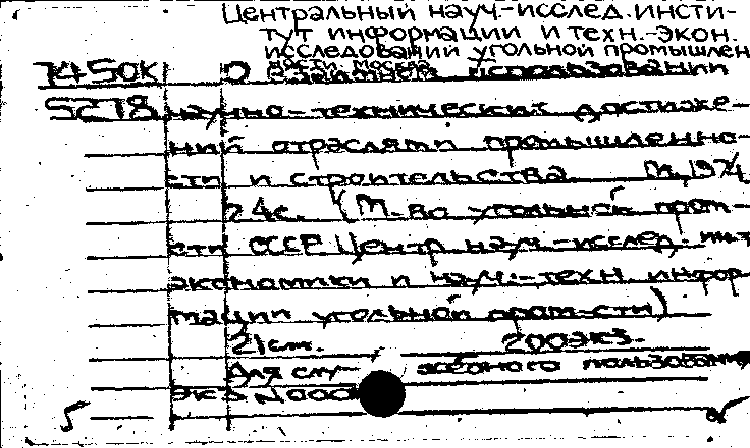 Центральный науч.-исслед. инсти-
тут информации и техн.-экон.
исследований угольной промышлен
ности. Москва
74-50К О взаимном использовании
5278 научно-технических достиже-
ний отраслями промышленно-
сти и строительства. М., 1974
24с. (М-во угольной пром-
сти СССР Центр науч.-исслед. ин-т
экономики и науч.-техн. инфор-
мации угольной пром-сти)
21см. 200экз.
Для служебного пользования
Экз N000